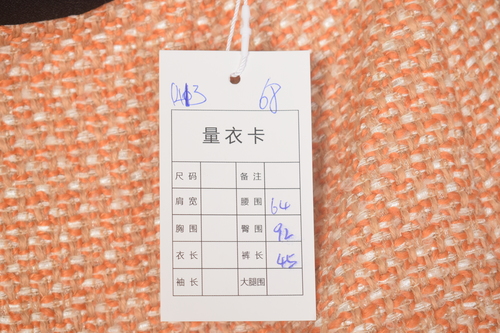 68
量衣卡
尺码 备注
肩宽 腰围 64
胸围 臀围 92
衣长 裤长 45
袖长 大腿围